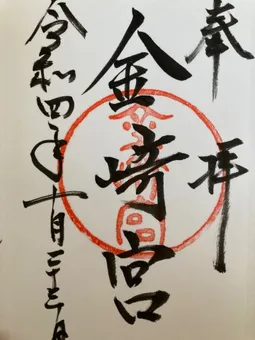 奉拝
金崎宮
令和四年十月二十三日